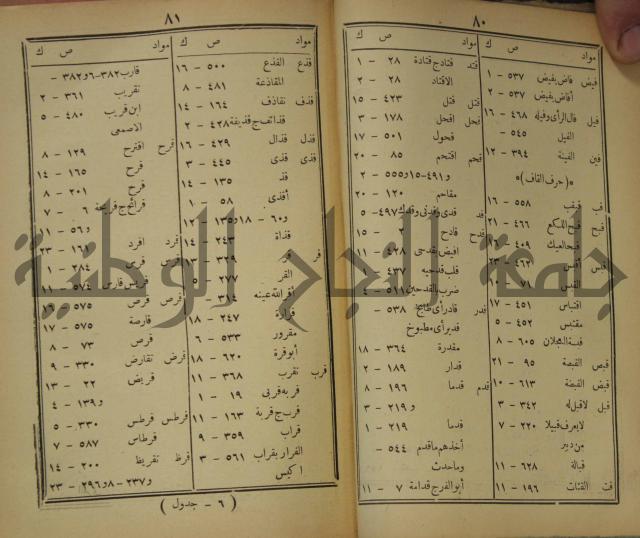 ٨٠
مواد ص ك
فيض فاض يفيض ٥٣٧ - ١
أفاض يفيض ٥٣٧ - ٢
فيل فال الرأى وفيله ٤٦٨ - ١٦
الفيل ٥٤٥ -
فين الفينة ٣٩٤ - ١٢
*(حرف القاف)*
قب قبقب ٥٥٨ - ١٦
قبح قبح الكع ٤٦٦ - ٢١
قبس أقبس ٤٦٢ - ٢٣
القبس ٧١ - ١٠
اقتباس ٤٥١ - ١٧
مقتبس ٤٥٢ - ٥
قبسة العجلان ٦٠٥ - ٨
قبص القبصة ٩٥ - ٢١
قبض القبضة ٦١٣ - ١٠
قبل لا قبل له ٣٤٢ - ٣
لا يعرف قبيلا ٢٢٠ - ٧
من دبير
قبالة ٦٢٨ - ١١
قت القتات ١٩٦ - ١١
مواد ص ك
قتد قتاد ج قتادة ٢٨ - ١
الاقتاد ٢٨ - ٢
قتل قتل ٤٢٣ - ١٥
قحل اقحل ١٧٨ - ٣
قحول ٥٠١ - ١٧
قحم اقتحم ٨٥ - ٢٠
و٤٩١-١٥ و٥٥٥ - ٢
مقاحم ١٢٠ - ٢٠
قد قدى وقدنى وقدك ٤٩٧-٥
قدح قادح ٢ - ١٥
٤٢٨ - ١١
٤٣٧ - ١
٥١١ - ٤
قدر قادر أى طابخ ٥٣٨ -
قدير أى مطبوخ
مقدرة ٣٦٤ - ١٨
قدار ١٨٩ - ٢
قدم قدما ١٩٦ - ٨
و٢١٩ - ٣
قدما ٢١٩ - ١
أخذهم ما قدم ٥٤٤ -
وما حدث
أبو الفرج قدامة ٧ - ١١
٨١
مواد ص ك
قذع القذع ٥٠٠ - ١٦
المقاذعة ٤٨١ - ٨
قذف تقاذف ١٦٤ - ١٤
قذائف ج قذيفة ٤٢٨ - ٢
قذل قذال ٤٢٩ - ١٦
قذى قذى ٤٤٥ - ٣
قذ ١٣٥ - ١٤
أقذى ٥٨ - ١
و٦٠-١٨ و١٣٥ - ١٢
قذاة ٢٤٣ - ١٤
قر قر ٣٢٩ - ١٣
القر ٢٧٧ - ٥
أقر الله عينه ٣١٤ -
قرارة ٢٤٧ - ١٨
مقرور ٥٣٣ - ٦
أبو قرة ٦٢٠ - ١٨
قرب تقرب ٣٦٨ - ١١
قربة قربى ١٩ - ١
قرب ج قربة ١٦٣ - ١١
قراب ٣٥٩ - ٩
الفرار بقراب ٥٦١ - ٣
اكيس
مواد ص ك
قارب ٣٨٢-٦ و٣٨٢ -
تقريب ٣٦١ - ٢
ابن قريب ٤٨٠ - ٥
الاصمعى
قرح اقترح ١٢٩ - ٨
قرح ١٦٥ - ١٤
قرح ٢٠١ - ٨
قرائح ج قريحة ٦ - ٧
و٥٦ - ١١
قرد اقرد ١٦٨ - ٢٣
قرس قرس ٢٨٤ - ١
قريس قارس ٥٧٤ - ١١
قرص قرص ٥٧٥ - ١٦
قارصة ٥٧٥ - ١٧
قرص ٧٣ - ٨
قرض تقارض ٣٣٠ - ٩
قريض ٢٢ - ١٣
و١٣٩ - ٤
قرطس قرطس ٣٣٠ - ٥
قرطاس ٥٨٧ - ٧
قرظ تقريظ ٢٠٠ - ١٤
و٢٣٧-٨ و٢٩٦ - ٢٣
( ٦ - جدول )
جامعة النجاح الوطنية